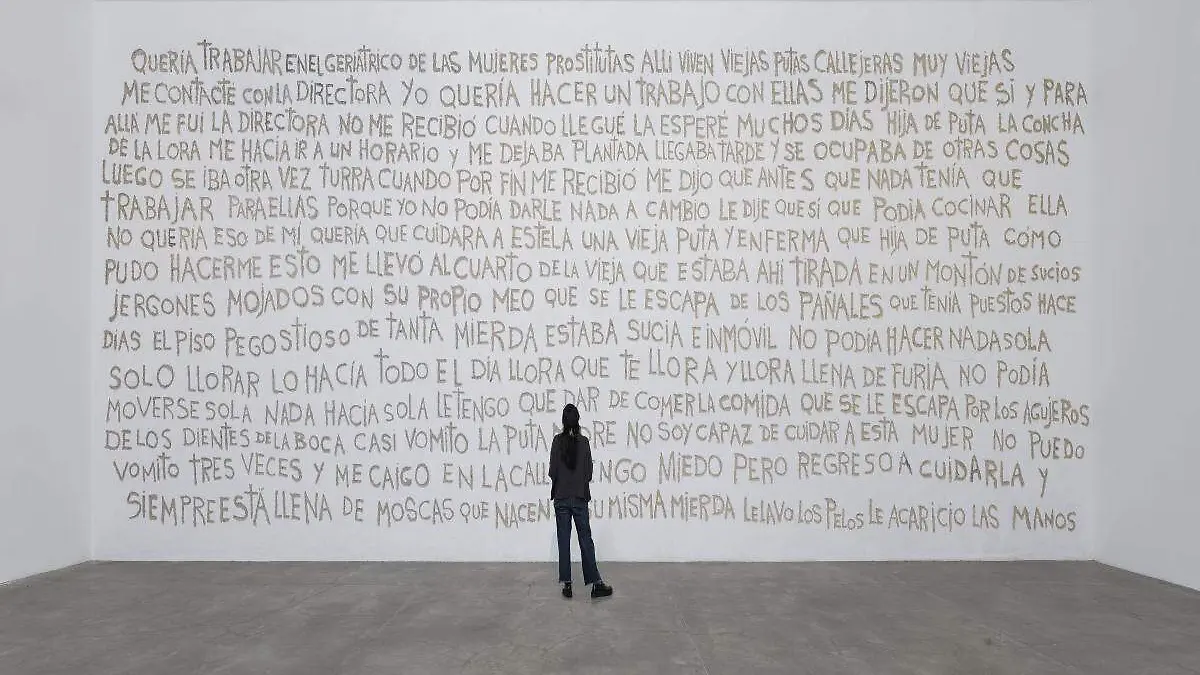 QUERÍA TRABAJAR EN EL GERIÁTRICO DE LAS MUJERES PROSTITUTAS ALLI VIVEN VIEJAS PUTAS CALLEJERAS MUY VIEJAS
ME CONTACTE CON LA DIRECTORA YO QUERÍA HACER UN TRABAJO CON ELLAS ME DIJERON QUE SI Y PARA
ALLÁ ME FUI LA DIRECTORA NO ME RECIBIÓ CUANDO LLEGUÉ LA ESPERÉ MUCHOS DÍAS HIJA DE PUTA LA CONCHA
DE LA LORA ME HACIA IR A UN HORARIO Y ME DEJABA PLANTADA LLEGABA TARDE Y SE OCUPABA DE OTRAS COSAS
LUEGO SE IBA OTRA VEZ TURRA CUANDO POR FIN ME RECIBIÓ ME DIJO QUE ANTES QUE NADA TENÍA QUE
TRABAJAR PARA ELLAS PORQUE YO NO PODÍA DARLE NADA A CAMBIO LE DIJE QUE SÍ QUE PODÍA COCINAR ELLA
NO QUERIA ESO DE MÍ QUERÍA QUE CUIDARA A ESTELA UNA VIEJA PUTA Y ENFERMA QUE HIJA DE PUTA CÓMO
PUDO HACERME ESTO ME LLEVÓ AL CUARTO DE LA VIEJA QUE ESTABA AHI TIRADA EN UN MONTÓN DE SUCIOS
JERGONES MOJADOS CON SU PROPIO MEO QUE SE LE ESCAPA DE LOS PAÑALES QUE TENÍA PUESTOS HACE
DÍAS EL PISO PEGOSTIOSO DE TANTA MIERDA ESTABA SUCIA E INMÓVIL NO PODÍA HACER NADA SOLA
SOLO LLORAR LO HACÍA TODO EL DÍA LLORA QUE TE LLORA Y LLORA LLENA DE FURIA NO PODÍA
MOVERSE SOLA NADA HACIA SOLA LE TENGO QUE DAR DE COMER LA COMIDA QUE SE LE ESCAPA POR LOS AGUJEROS
DE LOS DIENTES DE LA BOCA CASI VOMITO LA PUTA NO SOY CAPAZ DE CUIDAR A ESTA MUJER NO PUEDO
VOMITO TRES VECES Y ME CAIGO EN LA MIEDO PERO REGRESO A CUIDARLA Y
SIEMPRE ESTÁ LLENA DE MOSCAS QUE NACEN MISMA MIERDA LE LAVO LOS PELOS LE ACARICIO LAS MANOS